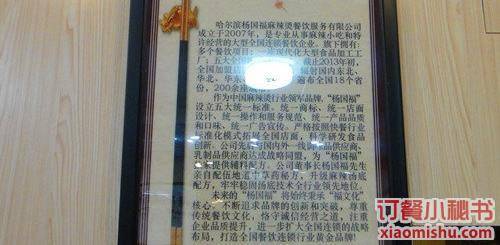 哈尔滨杨国福麻辣烫餐饮服务有限公司
成立于2007年，是专业从事麻辣小吃和特
许经营的大型全国连锁餐饮企业。旗下拥有：
多个餐饮项目；一 现代化大型食品加工工
厂；五大全 截止2013年初，
全国加盟店 辐射国内东北、
华北、华东 遍布全国18个省
份，200余座
作为中国麻辣烫行业领军品牌，“杨国福”
设立五大统一标准，统一商标、统一店面
设计、统一操作和服务规范、统一产品品质
和口味、统一广告宣传。严格按照快餐行业
标准化模式拓展全国店面，科学研发食品
创新。公司先后与国内外一线 品供应商、
乳制品供应商达成战略同盟，为“杨国福”
提供辅料配方。公司董事长杨国福先生
亲自配伍地道中草药秘方，升级麻辣汤底
配方，牢牢稳固汤底技术全行业领先地位。
未来的“杨国福”将始终秉承“福文化”
核心，不断追求品牌的创新和突破，尊重
传统餐饮文化，恪守诚信经营之道，注重
企业品质提升，进一步扩大全国连锁的战略
布局，打造全国餐饮连锁行业黄金品牌！
订餐小秘书
xiaomishu.com